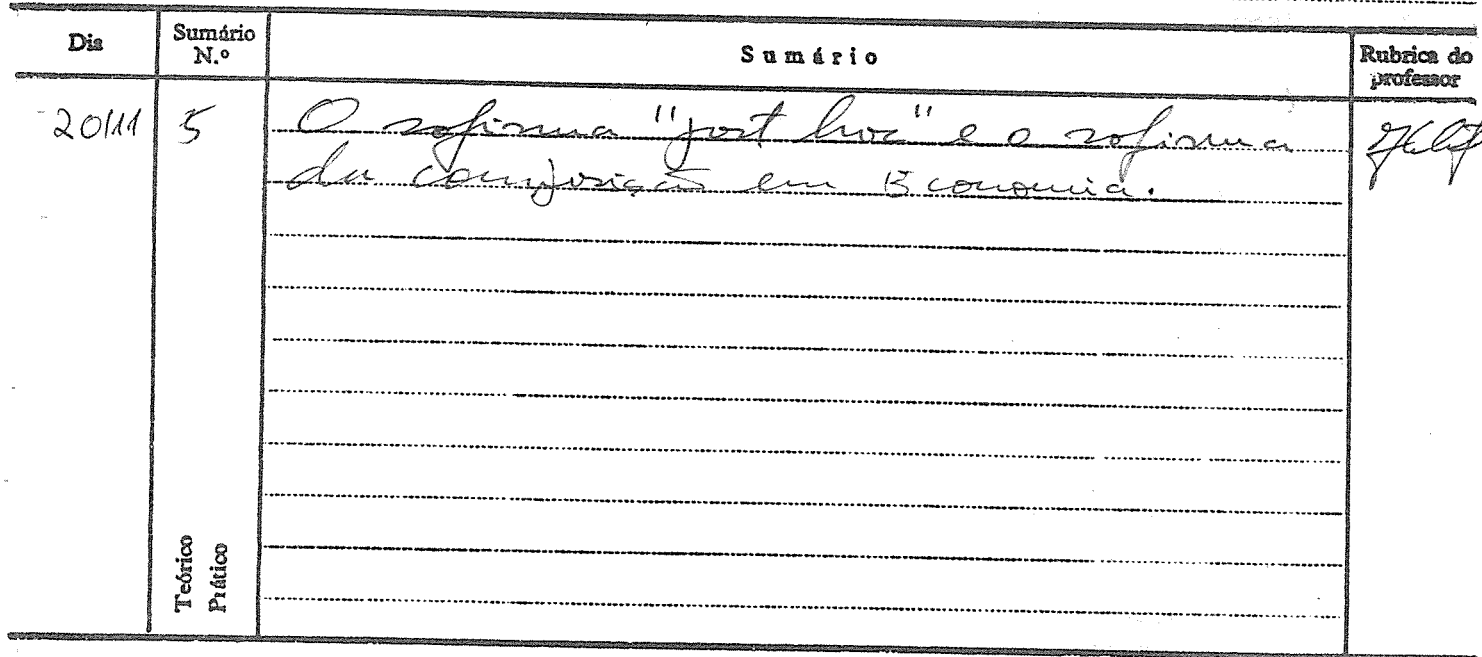 Dia
Sumário N.º
Sumário
Rubrica do professor
20/11
5
O sofisma "post hoc" e o sofisma
da composição em Economia.
Teórico
Prático